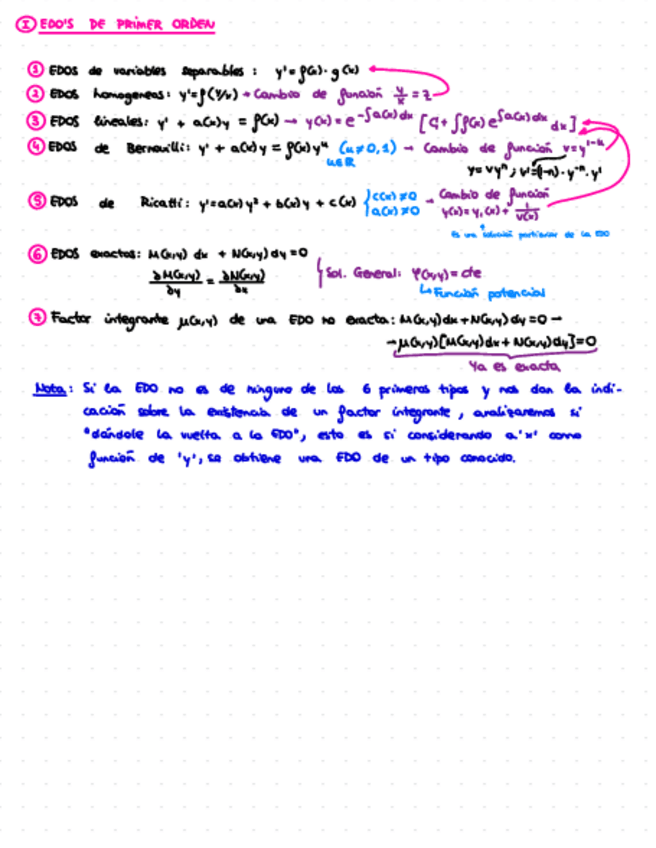 Ⓘ EDO'S DE PRIMER ORDEN
① EDOS de variables separables : y' = f(x) · g(x)
② EDOS homogeneas: y' = f(y/x) → Cambio de función y/x = z
③ EDOS lineales: y' + a(x)y = f(x) → y(x) = e^-∫a(x)dx [C₁ + ∫f(x) e^∫a(x)dx dx]
④ EDOS de Bernouilli: y' + a(x)y = f(x)yⁿ (n≠0,1) → Cambio de función v = y^1-n
n∈R
y = vyⁿ ; v' = (1-n) · y^-n · y'
⑤ EDOS de Ricatti: y' = a(x)y² + b(x)y + c(x) { c(x)≠0 a(x)≠0 → Cambio de función
y(x) = y₁(x) + 1/v(x)
Es una solución particular de la EDO
⑥ EDOS exactas: M(x,y) dx + N(x,y) dy = 0
∂M(x,y)/∂y = ∂N(x,y)/∂x { Sol. General: φ(x,y) = cte
↳ Función potencial
⑦ Factor integrante μ(x,y) de una EDO no exacta: M(x,y)dx + N(x,y)dy = 0 →
→ μ(x,y)[M(x,y)dx + N(x,y)dy] = 0
Ya es exacta
Nota: Si la EDO no es de ninguno de los 6 primeros tipos y nos dan la indi-
cación sobre la existencia de un factor integrante, analizaremos si
"dándole la vuelta a la EDO", esto es si considerando a 'x' como
función de 'y', se obtiene una EDO de un tipo conocido.